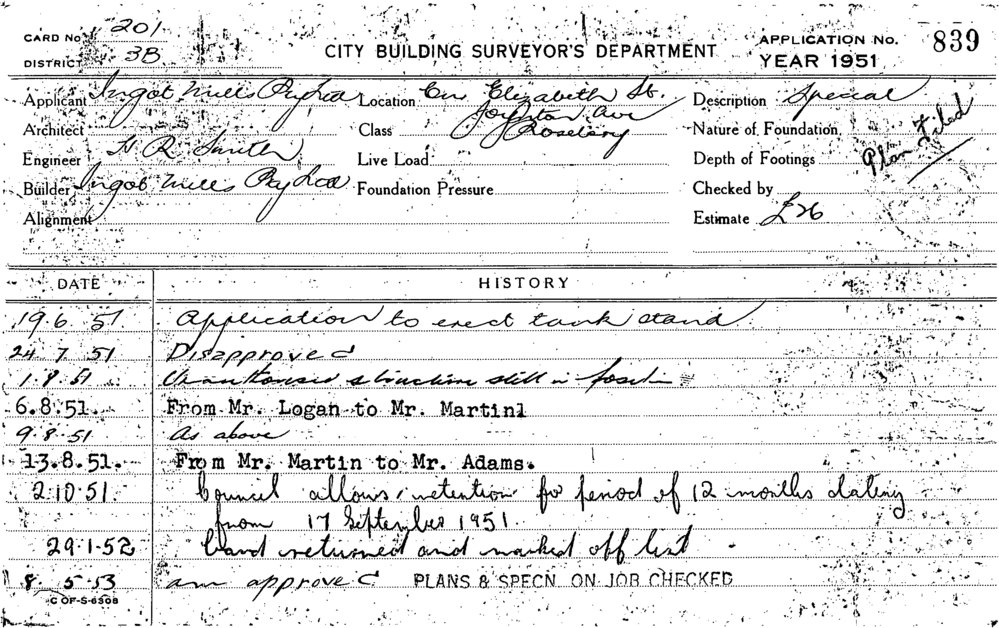 CARD No. 201
DISTRICT 3B
CITY BUILDING SURVEYOR'S DEPARTMENT
APPLICATION No. 839
YEAR 1951
Applicant Ingot Mills Pty Ltd
Location Cnr Elizabeth St.
Joynton Ave
Rosebery
Description Special
Architect
Class
Nature of Foundation
Plan Filed
Engineer H R Smith
Live Load
Depth of Footings
Builder Ingot Mills Pty Ltd
Foundation Pressure
Checked by
Alignment
Estimate £26
DATE HISTORY
19 6 51 Application to erect tank stand
24 7 51 Disapproved
1.8.51 Unauthorised structure still in
6.8.51. From Mr. Logan to Mr. Martin
9.8.51 As above
13.8.51. From Mr. Martin to Mr. Adams.
2.10.51. Council allows retention for period of 12 months dating
from 17 September 1951.
29.1.52 Card returned and marked off list
8 5 53 am approved PLANS & SPECN. ON JOB CHECKED
C OF S-6308